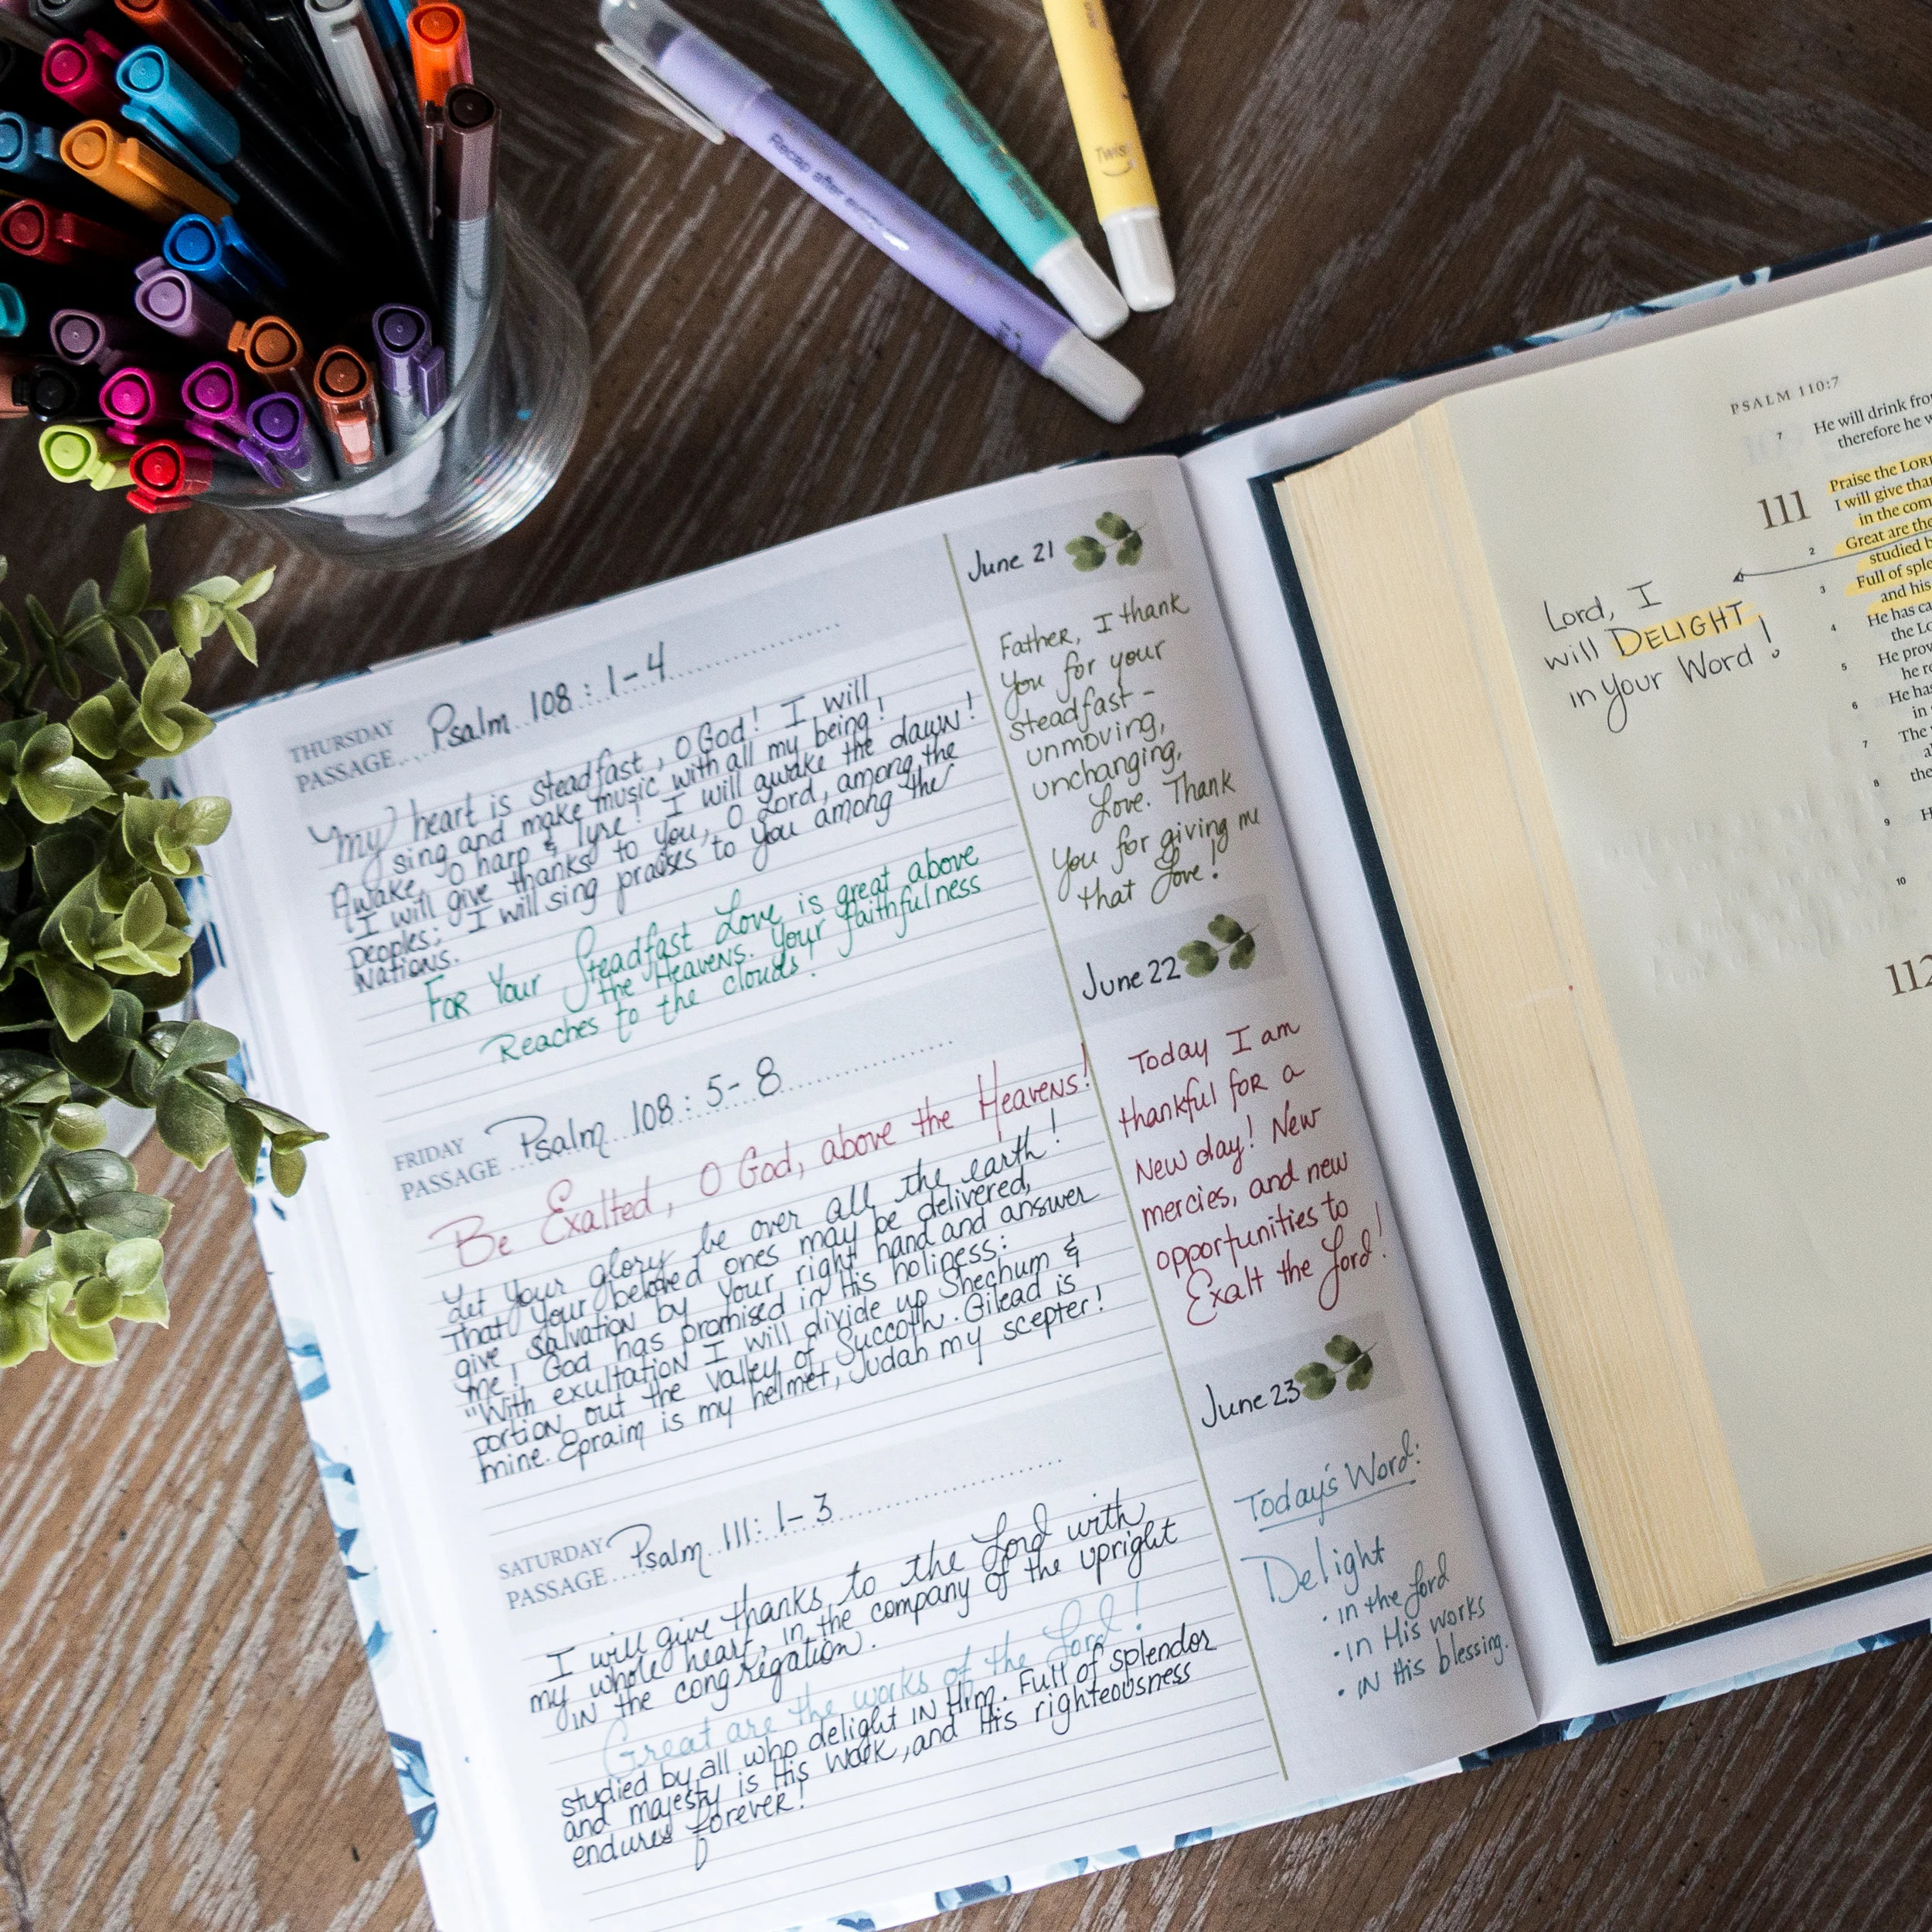 Recap after every use
Twis
THURSDAY
PASSAGE
Psalm 108:1-4
My heart is steadfast, O God! I will
sing and make music with all my being!
Awake, O harp & lyre! I will awake the dawn!
I will give thanks to You, O Lord, among the
Peoples; I will sing praises to You among the
Nations.
For Your Steadfast Love is great above
the Heavens. Your faithfulness
Reaches to the clouds!
June 21
Father, I thank
You for your
steadfast-
unmoving,
unchanging,
Love. Thank
You for giving me
that Love!
FRIDAY
PASSAGE
Psalm 108:5-8
Be Exalted, O God, above the Heavens!
Let Your glory be over all the earth!
That Your beloved ones may be delivered,
give salvation by Your right hand and answer
me! God has promised in His holiness:
"With exultation I will divide up Shechum &
portion out the valley of Succoth. Gilead is
mine. Epraim is my helmet, Judah my scepter!
June 22
Today I am
thankful for a
New day! New
mercies, and new
opportunities to
Exalt the Lord!
SATURDAY
PASSAGE
Psalm 111:1-3
I will give thanks to the Lord with
my whole heart, in the company of the upright
in the congregation.
Great are the works of the Lord!
studied by all who delight in Him. Full of splendor
and majesty is His work, and His righteousness
endures forever!
June 23
Today's Word:
Delight
• in the Lord
• in His works
• in His blessing.
PSALM 110:7
7 He will drink fro
therefore he w
111 Praise the LORD
I will give than
in the com
2 Great are the
studied b
3 Full of sple
and his
4 He has ca
the Lo
5 He prov
he re
6 He has
in
7 The
8 the
9 H
10
112
Lord, I
will DELIGHT
in Your Word!